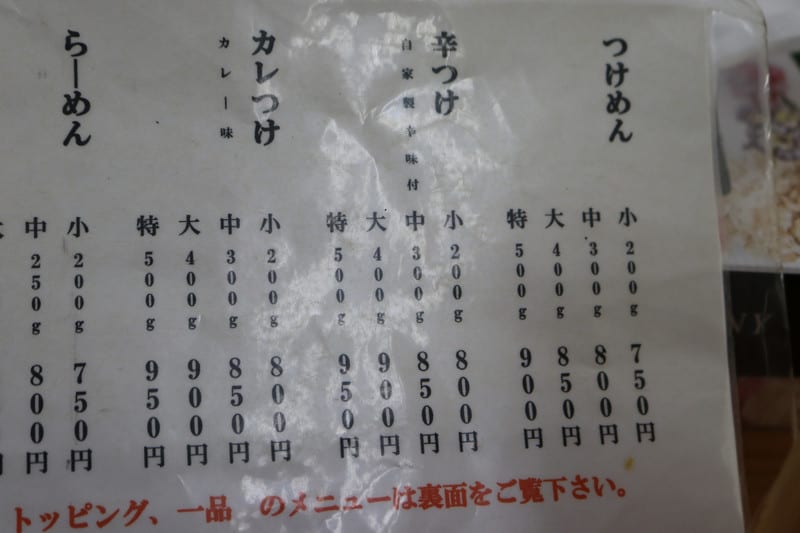 つけめん
小 200g 750円
中 300g 800円
大 400g 850円
特 500g 900円
辛つけ
自家製辛味付
小 200g 800円
中 300g 850円
大 400g 900円
特 500g 950円
カレつけ
カレー味
小 200g 800円
中 300g 850円
大 400g 900円
特 500g 950円
らーめん
小 200g 750円
中 250g 800円
トッピング、一品 のメニューは裏面をご覧下さい。